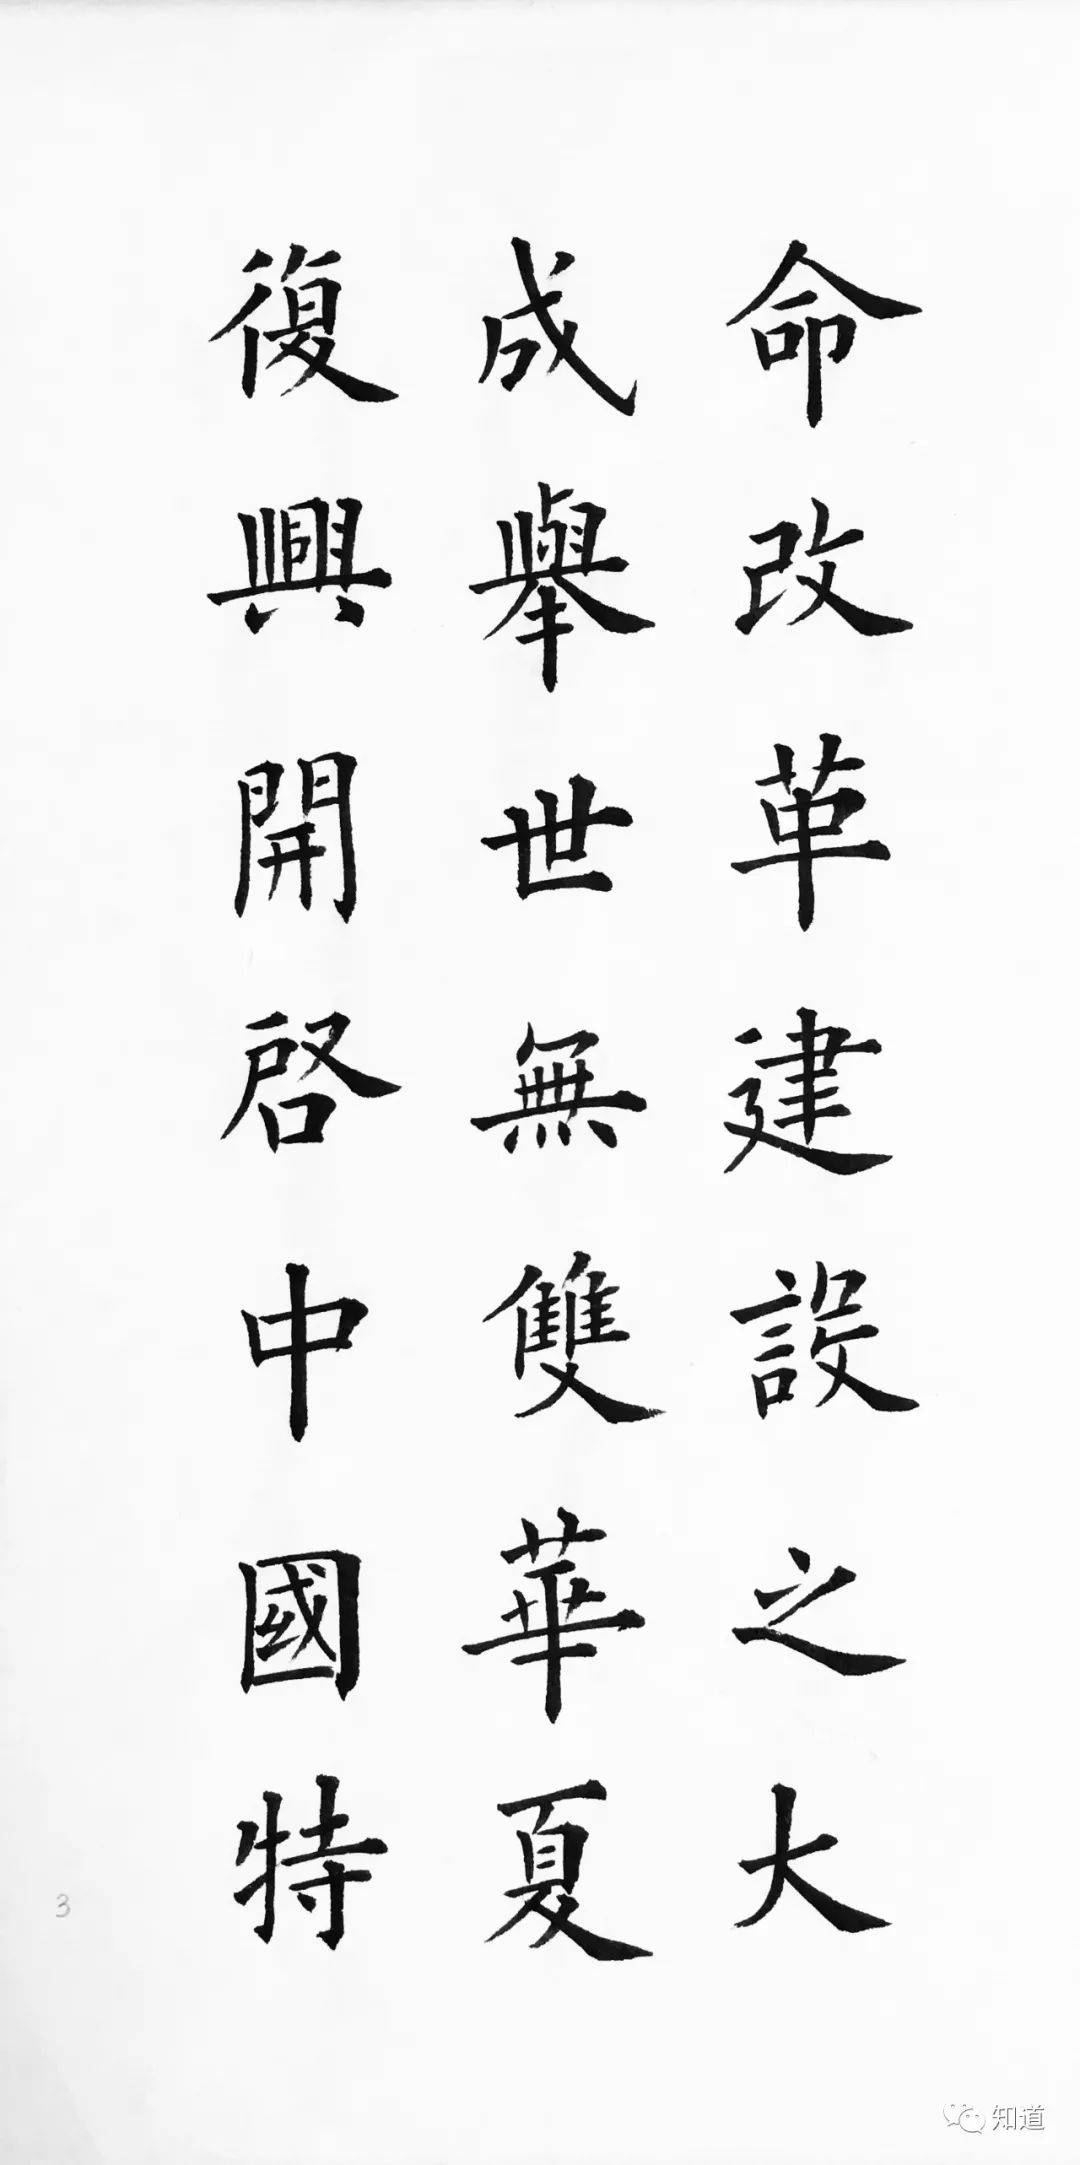 命改革建設之大
成舉世無雙華夏
復興開啓中國特
3
知道